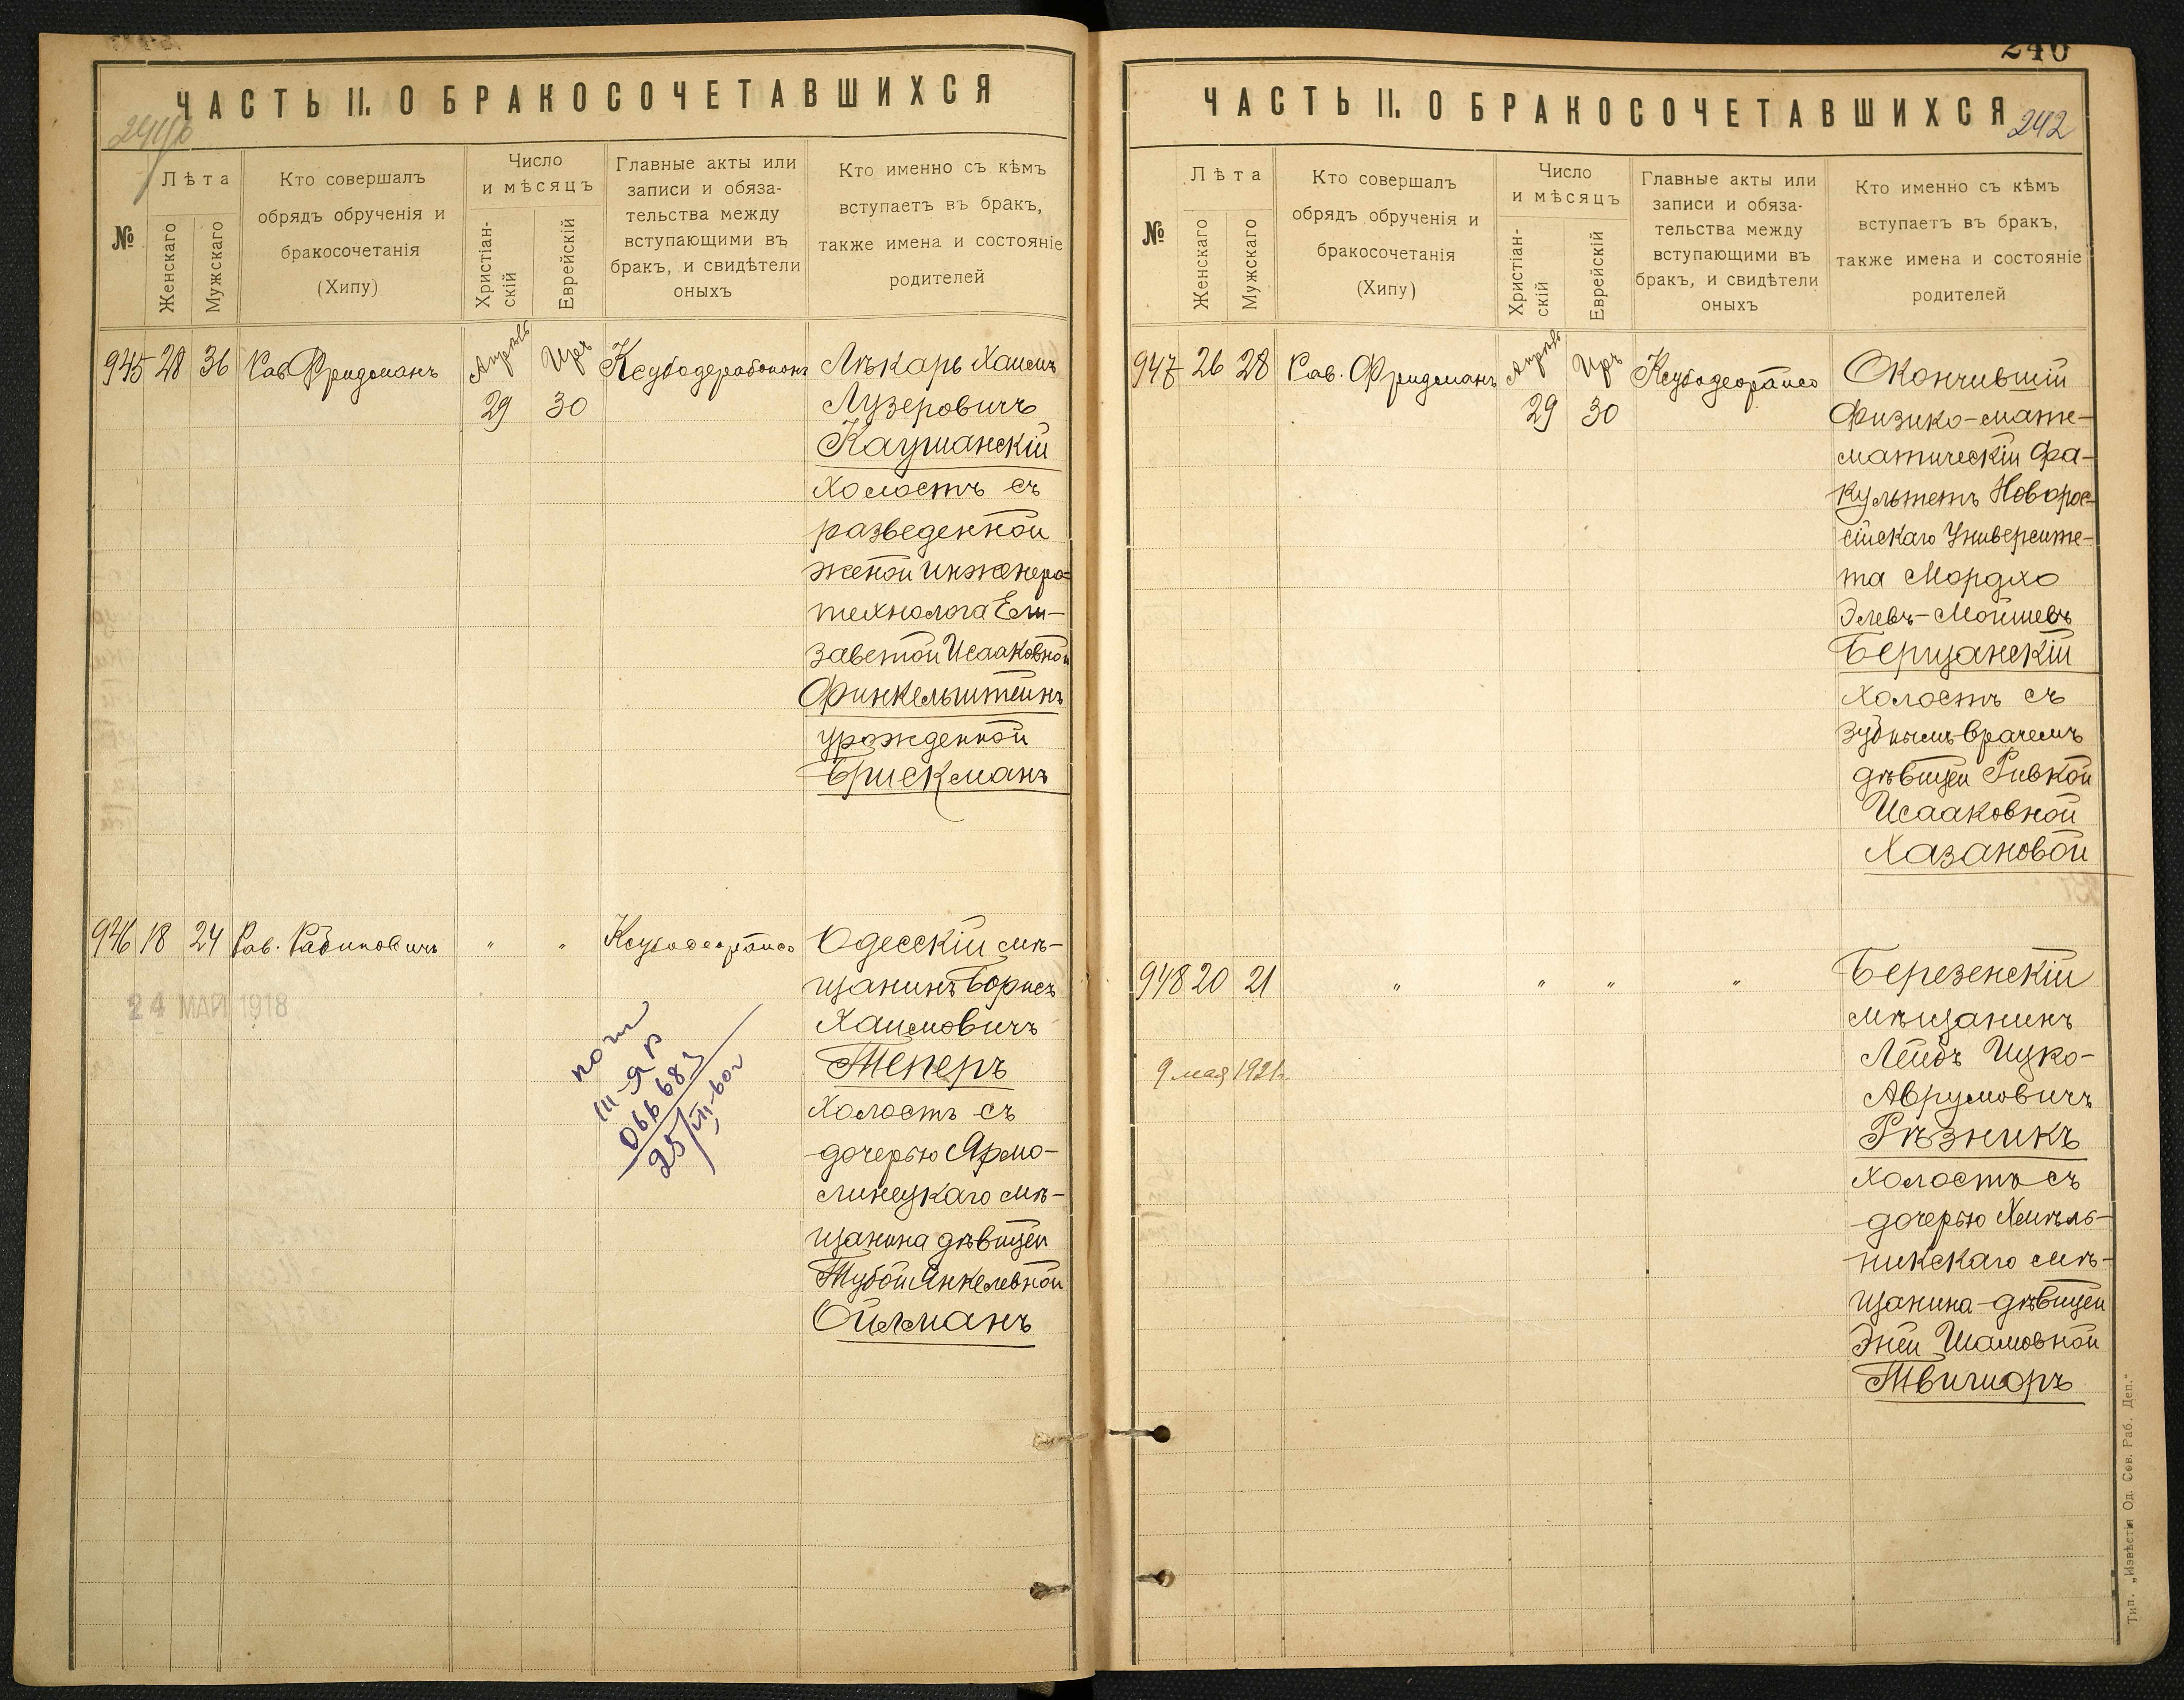 ЧАСТЬ II. О БРАКОСОЧЕТАВШИХСЯ
№
Лѣта
Женскаго
Мужскаго
Кто совершалъ
обрядъ обрученія и
бракосочетанія
(Хипу)
Число
и мѣсяцъ
Христіан-
скій
Еврейскій
Главные акты или
записи и обяза-
тельства между
вступающими въ
бракъ, и свидѣтели
оныхъ
Кто именно съ кѣмъ
вступаетъ въ бракъ,
также имена и состояніе
родителей
945 28 36 Рав. Фридманъ Апрѣль Иръ
29 30
Лѣкарь Хаимъ
Лузеровичъ
Каушанскій
холостъ съ
разведенной
женой инженера-
технолога Ели-
заветой Исааковной
Финкельштейнъ
урожденной
Брискманъ
946 18 24 Рав. Рабиновичъ " "
24 МАЯ 1918
Одесскій мѣ-
щанинъ Борисъ
Хаимовичъ
Теперъ
холостъ съ
дочерью Ярмо-
линецкаго мѣ-
щанина дѣвицей
Тубой Янкелевной
Ойлманъ
повт
III-ЯР
066683
25/VII-60г
240
ЧАСТЬ II. О БРАКОСОЧЕТАВШИХСЯ
242
№
Лѣта
Женскаго
Мужскаго
Кто совершалъ
обрядъ обрученія и
бракосочетанія
(Хипу)
Число
и мѣсяцъ
Христіан-
скій
Еврейскій
Главные акты или
записи и обяза-
тельства между
вступающими въ
бракъ, и свидѣтели
оныхъ
Кто именно съ кѣмъ
вступаетъ въ бракъ,
также имена и состояніе
родителей
947 26 28 Рав. Фридманъ Апрѣль Иръ
29 30
Окончившій
физико-мате-
матическій фа-
культетъ Новорос-
сійскаго Университе-
та Мордхо
Элевъ-Мойшевъ
Берщанскій
холостъ съ
зубнымъ врачемъ
дѣвицей Ривкой
Исааковной
Хазановой
948 20 21 " " " "
9 мая 1921г.
Березенскій
мѣщанинъ
Лейбъ Ицко-
Аврумовичъ
Рѣзникъ
холостъ съ
дочерью Хмѣль-
никскаго мѣ-
щанина-дѣвицей
Эней Шамовной
Твигиоръ
Тип. „Извѣстія Од. Сов. Раб. Деп."